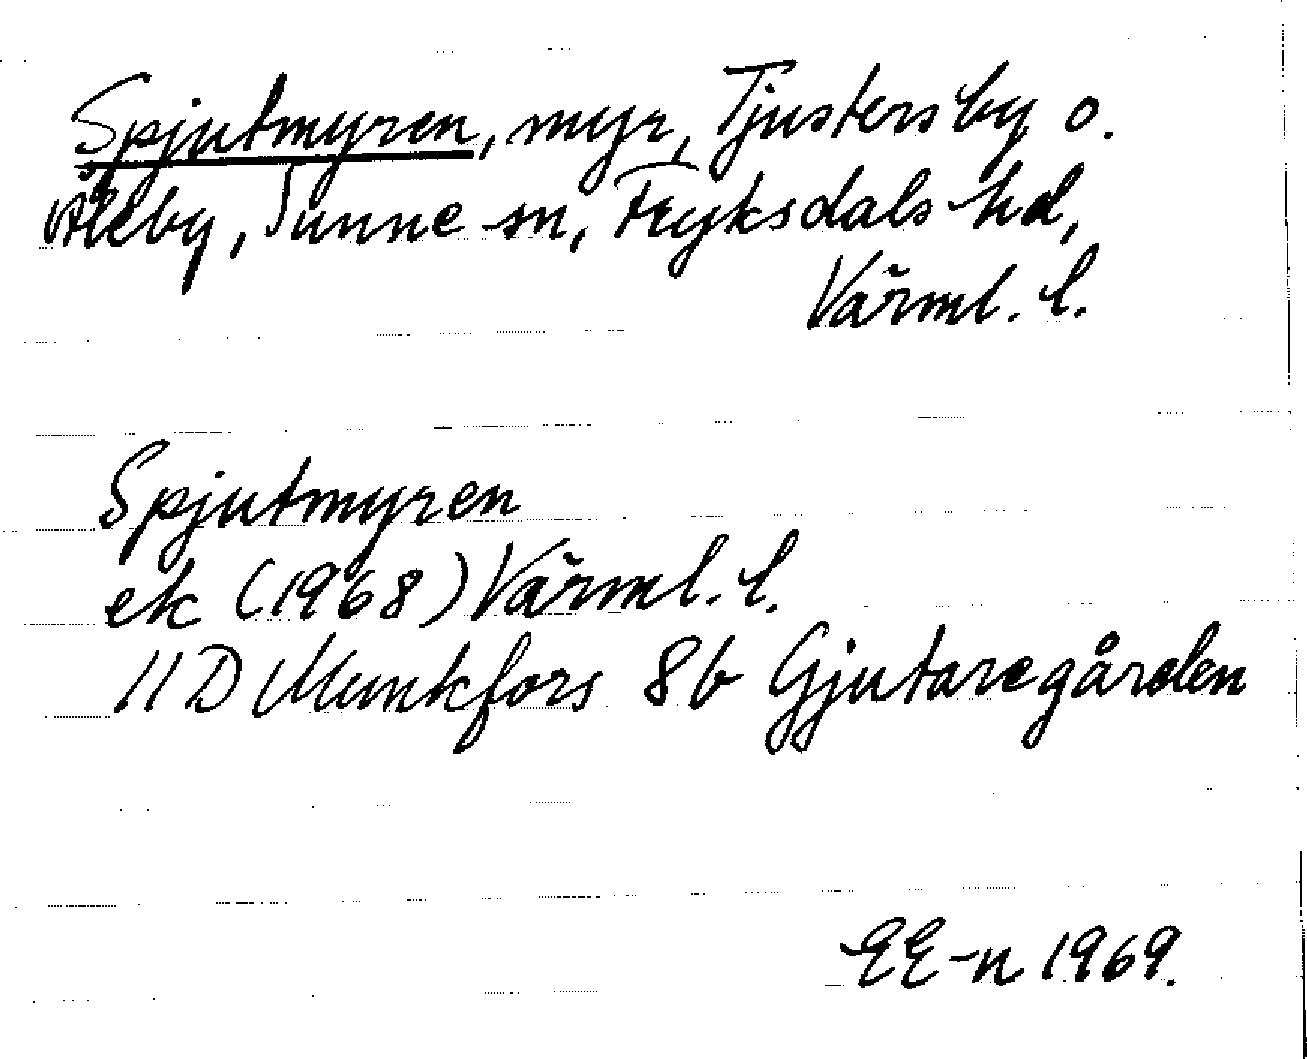 Spjutmyren, myr, Tjustersby o.
Åleby, Sunne sn, Fryksdals hd,
Värml. l.
Spjutmyren
ek (1968) Värml. l.
11 D Munkfors 8b Gjutaregården
EE-n 1969.